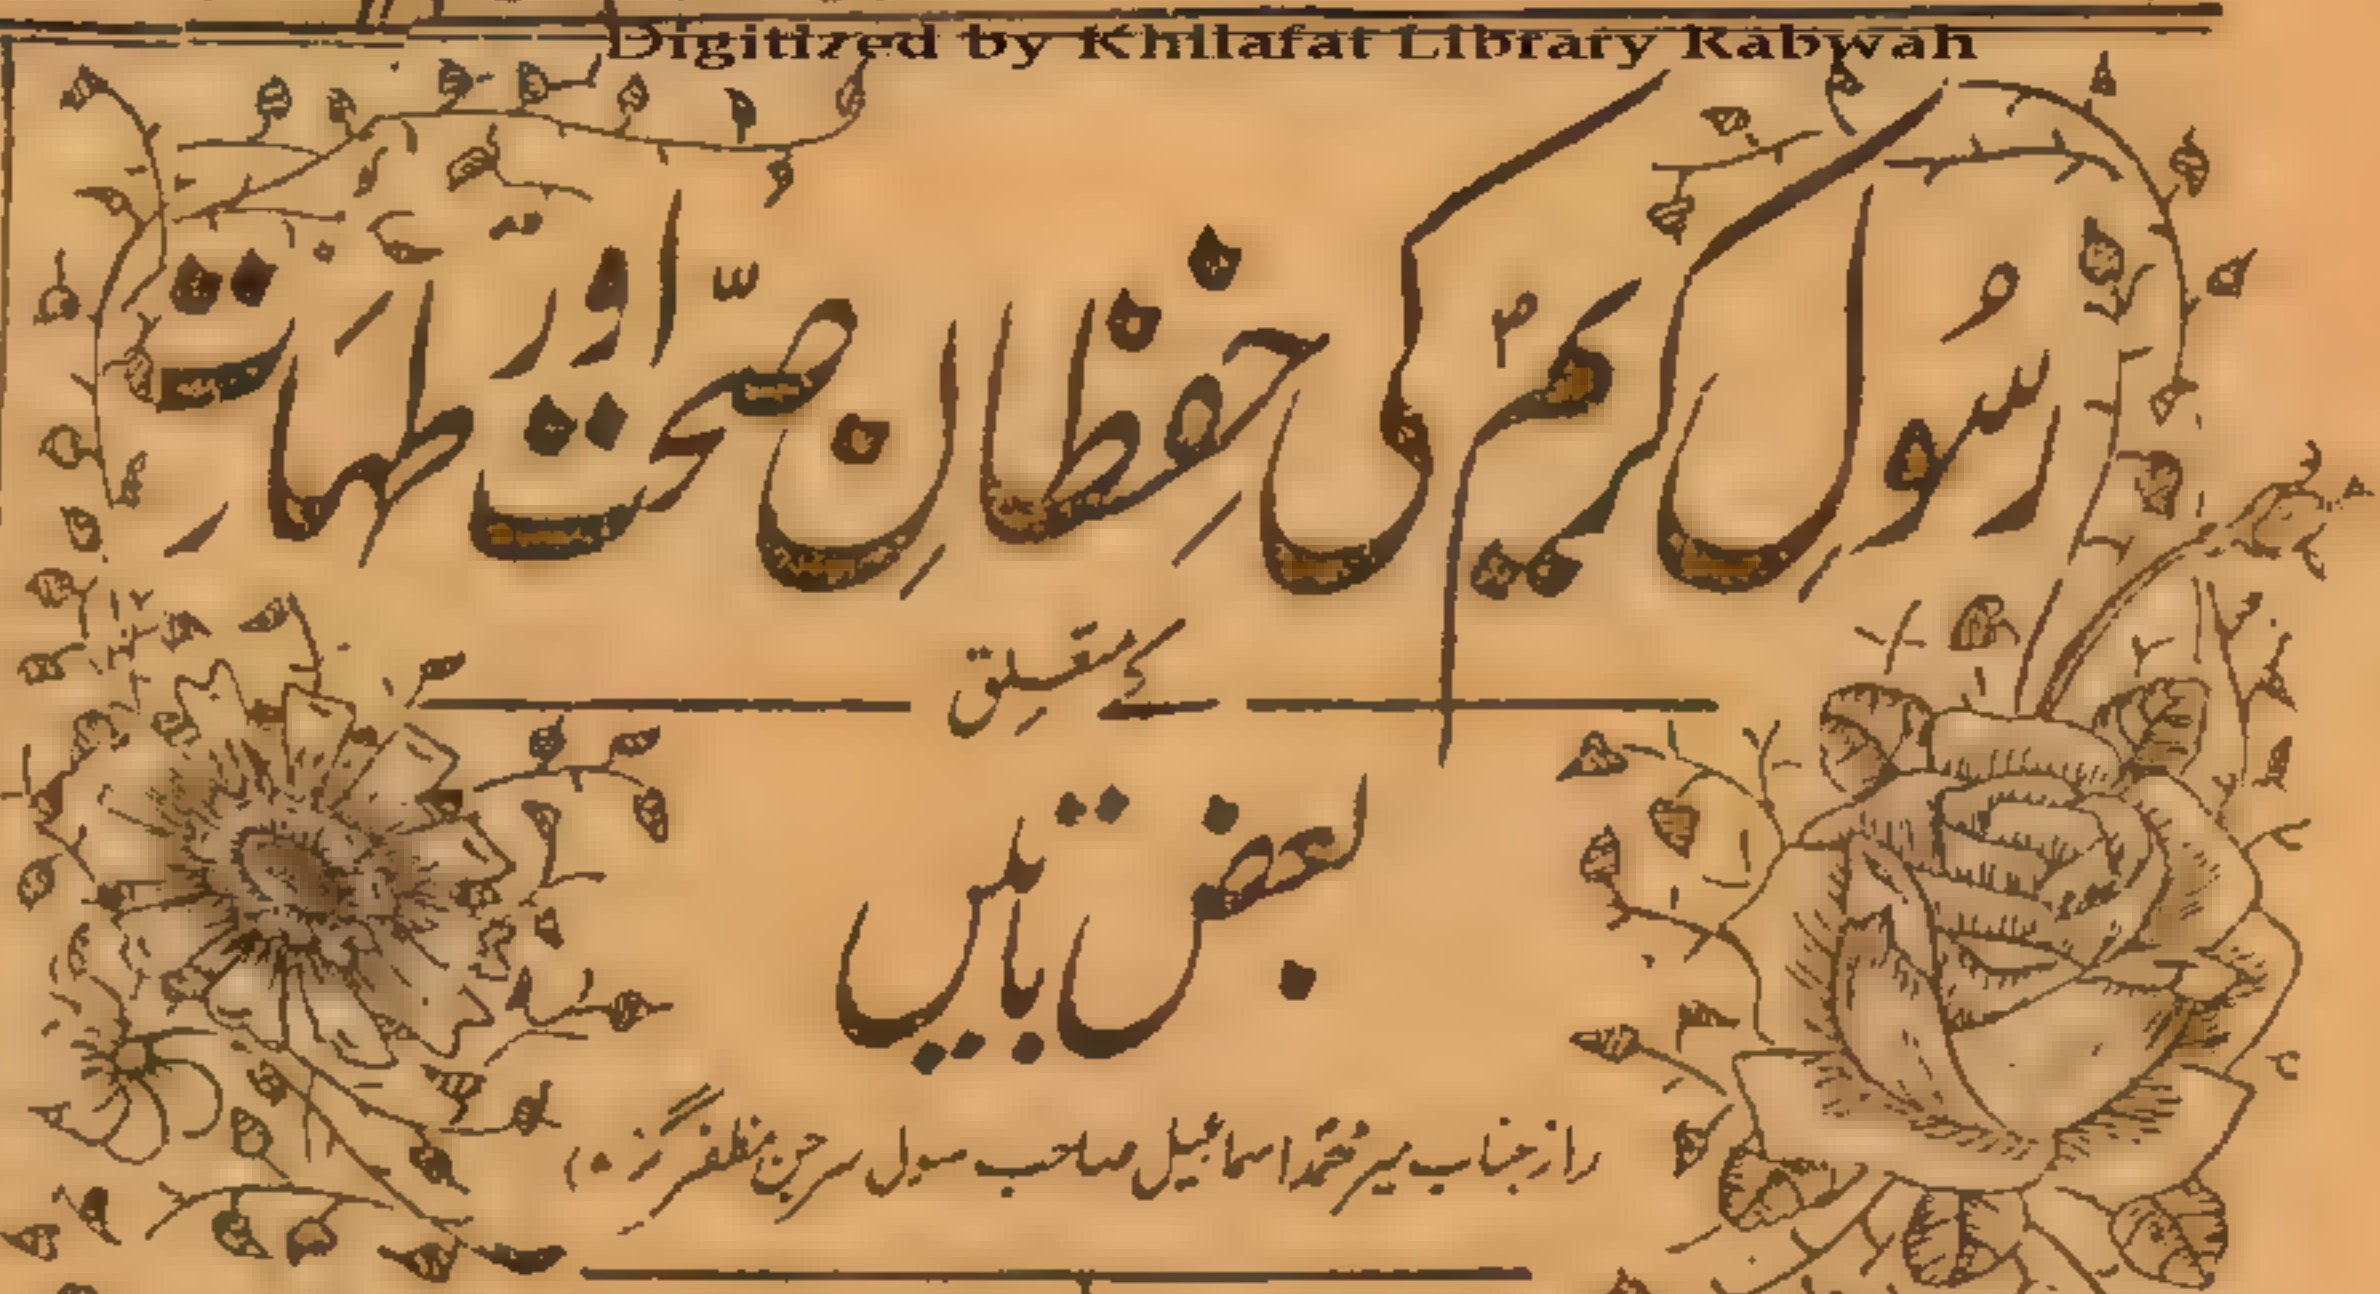 Digitized by Khilafat Library Rabwah
رسُول کریم ؐ کی حِفظانِ صحّت اور طہَارت
کے متعلق
بعض باتیں
(از جناب میر محمدؐ اسماعیل صاحب سول سرجن مظفر گڑھ)